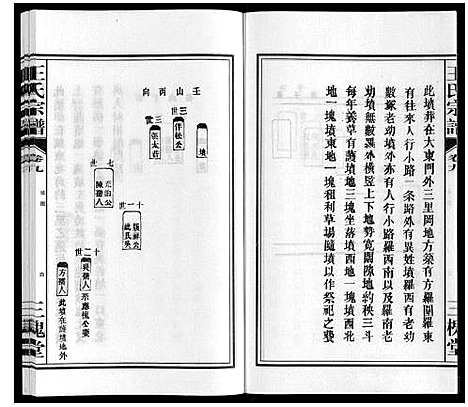 王氏宗譜
卷九
三槐堂
此墳葬在大東門外三里岡地方築有方羅圍羅東
有往來人行小路一條路外有異姓墳羅西南以及羅
數塚老幼墳外又有人行小路羅西南以及羅
幼墳無數羅外橫竪上下地勢寬闊除地約秧三斗
每年蓄草有蕩墳地三塊坐落墳西地一塊墳西北
地一塊墳東地一塊租利草場隨墳以作祭祀之費
壬山丙向
墳
三世
仲松公
三世
張太莊
七世
元治公
陳孺人
十一世
十二世
吳孺人
方孺人
此墳在蕩墳地外
王氏宗譜
卷九
墳圖
三槐堂